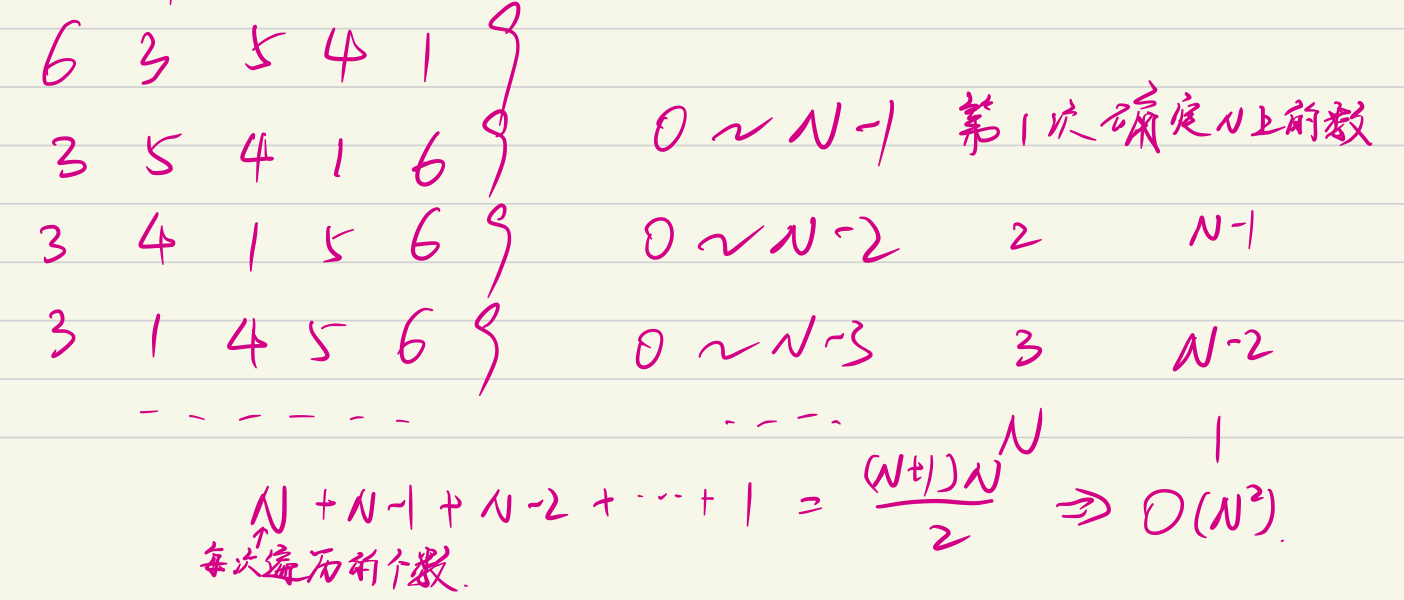 6 3 5 4 1
3 5 4 1 6 0 ~ N-1 第1次确定N上的数
3 4 1 5 6 0 ~ N-2 2 N-1
3 1 4 5 6 0 ~ N-3 3 N-2
------ ---- N 1
N + N-1 + N-2 + ... + 1 = (N+1)N/2 ⇒ O(N²).
↑
每次遍历的个数.